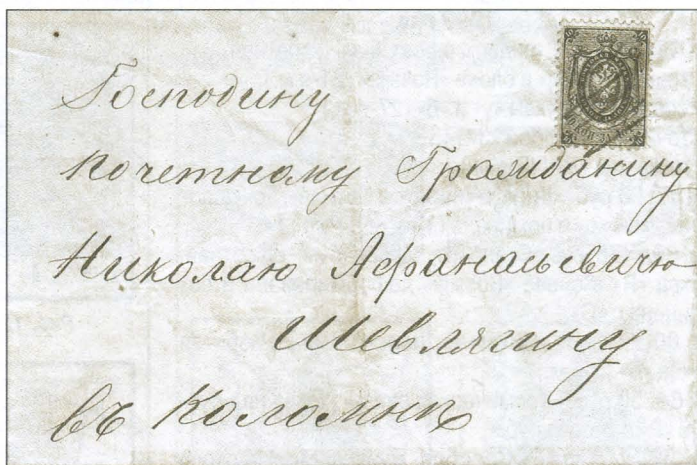 Господину
Почетному Гражданину
Николаю Афанасьевичю
Шевлягину
въ Коломнѣ